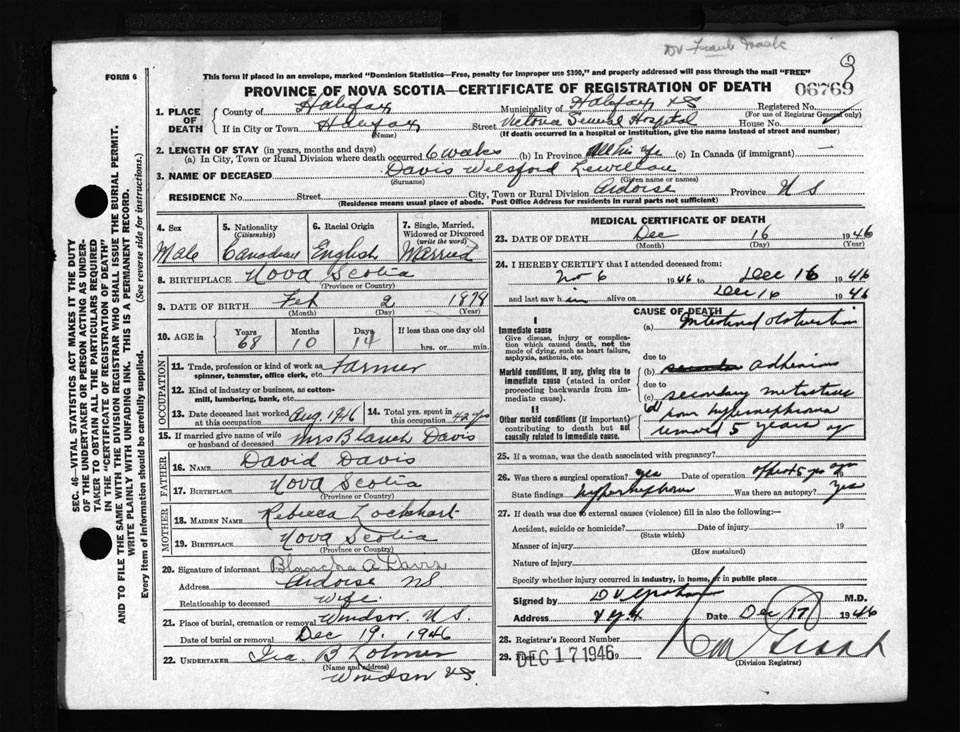 Dr Frank Mack
FORM 6
This form if placed in an envelope, marked "Dominion Statistics—Free, penalty for improper use $300," and properly addressed will pass through the mail "FREE"
PROVINCE OF NOVA SCOTIA—CERTIFICATE OF REGISTRATION OF DEATH 06769
1. PLACE OF DEATH County of Halifax Municipality of Halifax NS Registered No.
(For use of Registrar General only)
If in City or Town Halifax Street Victoria General Hospital House No.
(Name) (If death occurred in a hospital or institution, give the name instead of street and number)
2. LENGTH OF STAY (in years, months and days)
(a) In City, Town or Rural Division where death occurred 6 weeks (b) In Province All his life (c) In Canada (if immigrant) —
3. NAME OF DECEASED Davis Wilsford Lewillan
(Surname) (Given name or names)
RESIDENCE No. Street City, Town or Rural Division Ardoise Province N S
(Residence means usual place of abode. Post Office Address for residents in rural parts not sufficient)
SEC. 46—VITAL STATISTICS ACT MAKES IT THE DUTY
OF THE UNDERTAKER OR PERSON ACTING AS UNDER-
TAKER TO OBTAIN ALL THE PARTICULARS REQUIRED
IN THE "CERTIFICATE OF REGISTRATION OF DEATH"
AND TO FILE THE SAME WITH THE DIVISION REGISTRAR WHO SHALL ISSUE THE BURIAL PERMIT.
WRITE PLAINLY WITH UNFADING INK. THIS IS A PERMANENT RECORD.
Every item of information should be carefully supplied. (See reverse side for instructions.)
4. Sex 5. Nationality (Citizenship) 6. Racial Origin 7. Single, Married, Widowed or Divorced (write the word)
Male Canadian English Married
8. BIRTHPLACE Nova Scotia
(Province or Country)
9. DATE OF BIRTH Feb 2 1878
(Month) (Day) (Year)
10. AGE in Years Months Days If less than one day old
68 10 14 hrs. or min.
OCCUPATION
11. Trade, profession or kind of work as spinner, teamster, office clerk, etc. Farmer
12. Kind of industry or business, as cotton-mill, lumbering, bank, etc.
13. Date deceased last worked at this occupation Aug 1946 14. Total yrs. spent in this occupation 42 yrs
15. If married give name of wife or husband of deceased Mrs Blanch Davis
FATHER
16. NAME David Davis
17. BIRTHPLACE Nova Scotia
(Province or Country)
MOTHER
18. MAIDEN NAME Rebecca Lockhart
19. BIRTHPLACE Nova Scotia
(Province or Country)
20. Signature of informant Blanche A Davis
Address Ardoise NS
Relationship to deceased Wife.
21. Place of burial, cremation or removal Windsor N.S.
Date of burial or removal Dec 19. 1946
22. UNDERTAKER Ira. B
(Name and address)
Windsor N.S.
MEDICAL CERTIFICATE OF DEATH
23. DATE OF DEATH Dec 16 1946
(Month) (Day) (Year)
24. I HEREBY CERTIFY that I attended deceased from:
Nov 6 1946 to Dec 16 1946
and last saw him alive on Dec 16 1946
CAUSE OF DEATH
I
Immediate cause (a) Intestinal obstruction
Give disease, injury or complication which caused death, not the mode of dying, such as heart failure, asphyxia, asthenia, etc.
due to
Morbid conditions, if any, giving rise to immediate cause (stated in order proceeding backwards from immediate cause). (b) adhesions
due to
(c) secondary metastasis
II
Other morbid conditions (if important) contributing to death but not causally related to immediate cause.
from hypernephroma
removed 5 years ago
25. If a woman, was the death associated with pregnancy?
26. Was there a surgical operation? yes Date of operation
State findings hypernephroma Was there an autopsy? Yes
27. If death was due to external causes (violence) fill in also the following:—
Accident, suicide or homicide? Date of injury 19
(State which)
Manner of injury
(How sustained)
Nature of injury
Specify whether injury occurred in industry, in home, or in public place
Signed by D V Graham M.D.
Address Date Dec 17 1946
28. Registrar's Record Number
29. Filed DEC 17 1946
(Division Registrar)